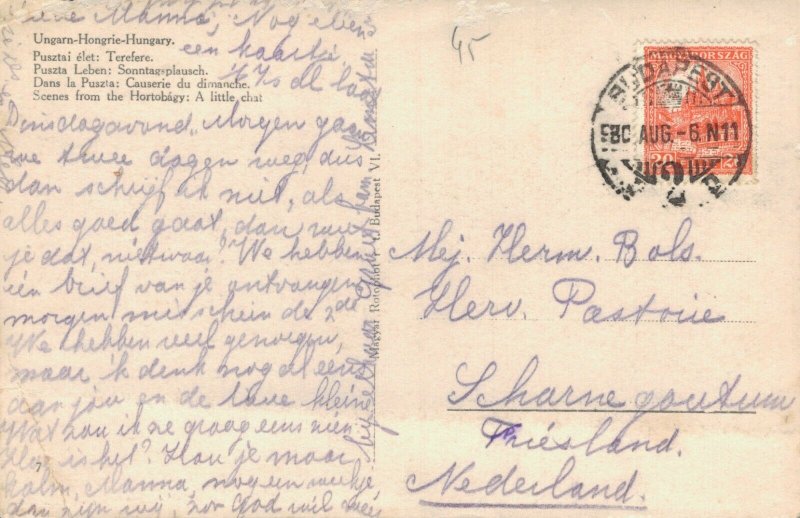 Manna, Nog eens
een kaartje.
'k Is al laat
Ungarn-Hongrie-Hungary.
Pusztai élet: Terefere.
Puszta Leben: Sonntagsplausch.
Dans la Puszta: Causerie du dimanche.
Scenes from the Hortobágy: A little chat
Dinsdagavond. Morgen gaan
we twee dagen weg, dus
dan schrijf ik niet, als
alles goed gaat, dan weet
je dat, nietwaar? We hebben
één brief van je ontvangen
morgen misschien de 2de
We hebben veel genoegen,
maar 'k denk nog al eens
aan jou en de lieve kleine
Wat zou ik ze graag eens zien
Hoe is het? Hou je maar
kalm, Manna, nog een weekje
dan zijn wij, zoo God wil weer
Magyar Budapest VI.
45
MAGYARORSZÁG
BUDAPEST
AUG.-6. N11
20
Mej. Herm. Bols.
Herv. Pastorie
Scharnegoutum
Friesland.
Nederland.